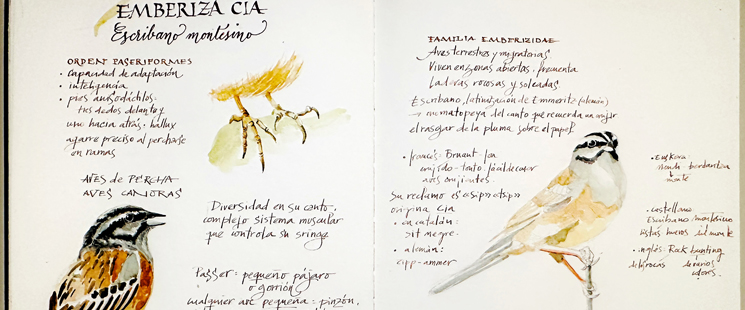 EMBERIZA CIA
Escribano montesino
ORDEN PASERIFORMES
• capacidad de adaptación
• inteligencia
• pies anisodáctilos:
tres dedos delante y
uno hacia atrás. hállux
agarre preciso al percharse
en ramas
AVES de PERCHA
AVES CANORAS
Diversidad en su canto.
complejo sistema muscular
que controla su siringe
Passer: pequeño pájaro
o gorrión
cualquier ave pequeña: pinzón,
FAMILIA EMBERIZIDAE
Aves terrestres y migratorias.
Viven en zonas abiertas, frecuenta
Laderas rocosas y soleadas
Escribano, latinización de Emmeritz (alemán)
→ onomatopeya del canto que recuerda
el rasgar de la pluma sobre el papel
• francés: Bruant fou
Su reclamo es "tsip" "tsip"
origina cia
• en catalán:
sit negre.
• alemán:
zipp-ammer
• Euskera
mendi berdantza
monte
• castellano
Escribano montesino
• inglés: Rock bunting